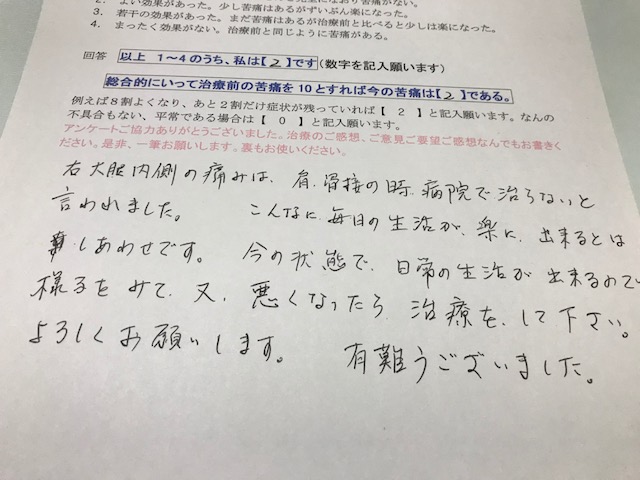 2. よい効果があった。少し苦痛はあるがずいぶん楽になった。
3. 若干の効果があった。まだ苦痛はあるが治療前と比べると少しは楽になった。
4. まったく効果がない。治療前と同じように苦痛がある。
回答 以上 1~4のうち、私は【2】です(数字を記入願います)
総合的にいって治療前の苦痛を10とすれば今の苦痛は【2】である。
例えば8割よくなり、あと2割だけ症状が残っていれば【 2 】と記入願います。なんの
不具合もない、平常である場合は【 0 】と記入願います。
アンケートご協力ありがとうございました。治療のご感想、ご意見ご要望ご感想なんでもお書きく
ださい。是非、一筆お願いします。裏もお使いください。
右大腿内側の痛みは、肩、骨接の時、病院で治らないと
言われました。 こんなに毎日の生活が、楽に、出来るとは
しあわせです。 今の状態で、日常の生活が出来るので
様子をみて、又、悪くなったら治療を、して下さい。
よろしくお願いします。 有難うございました。